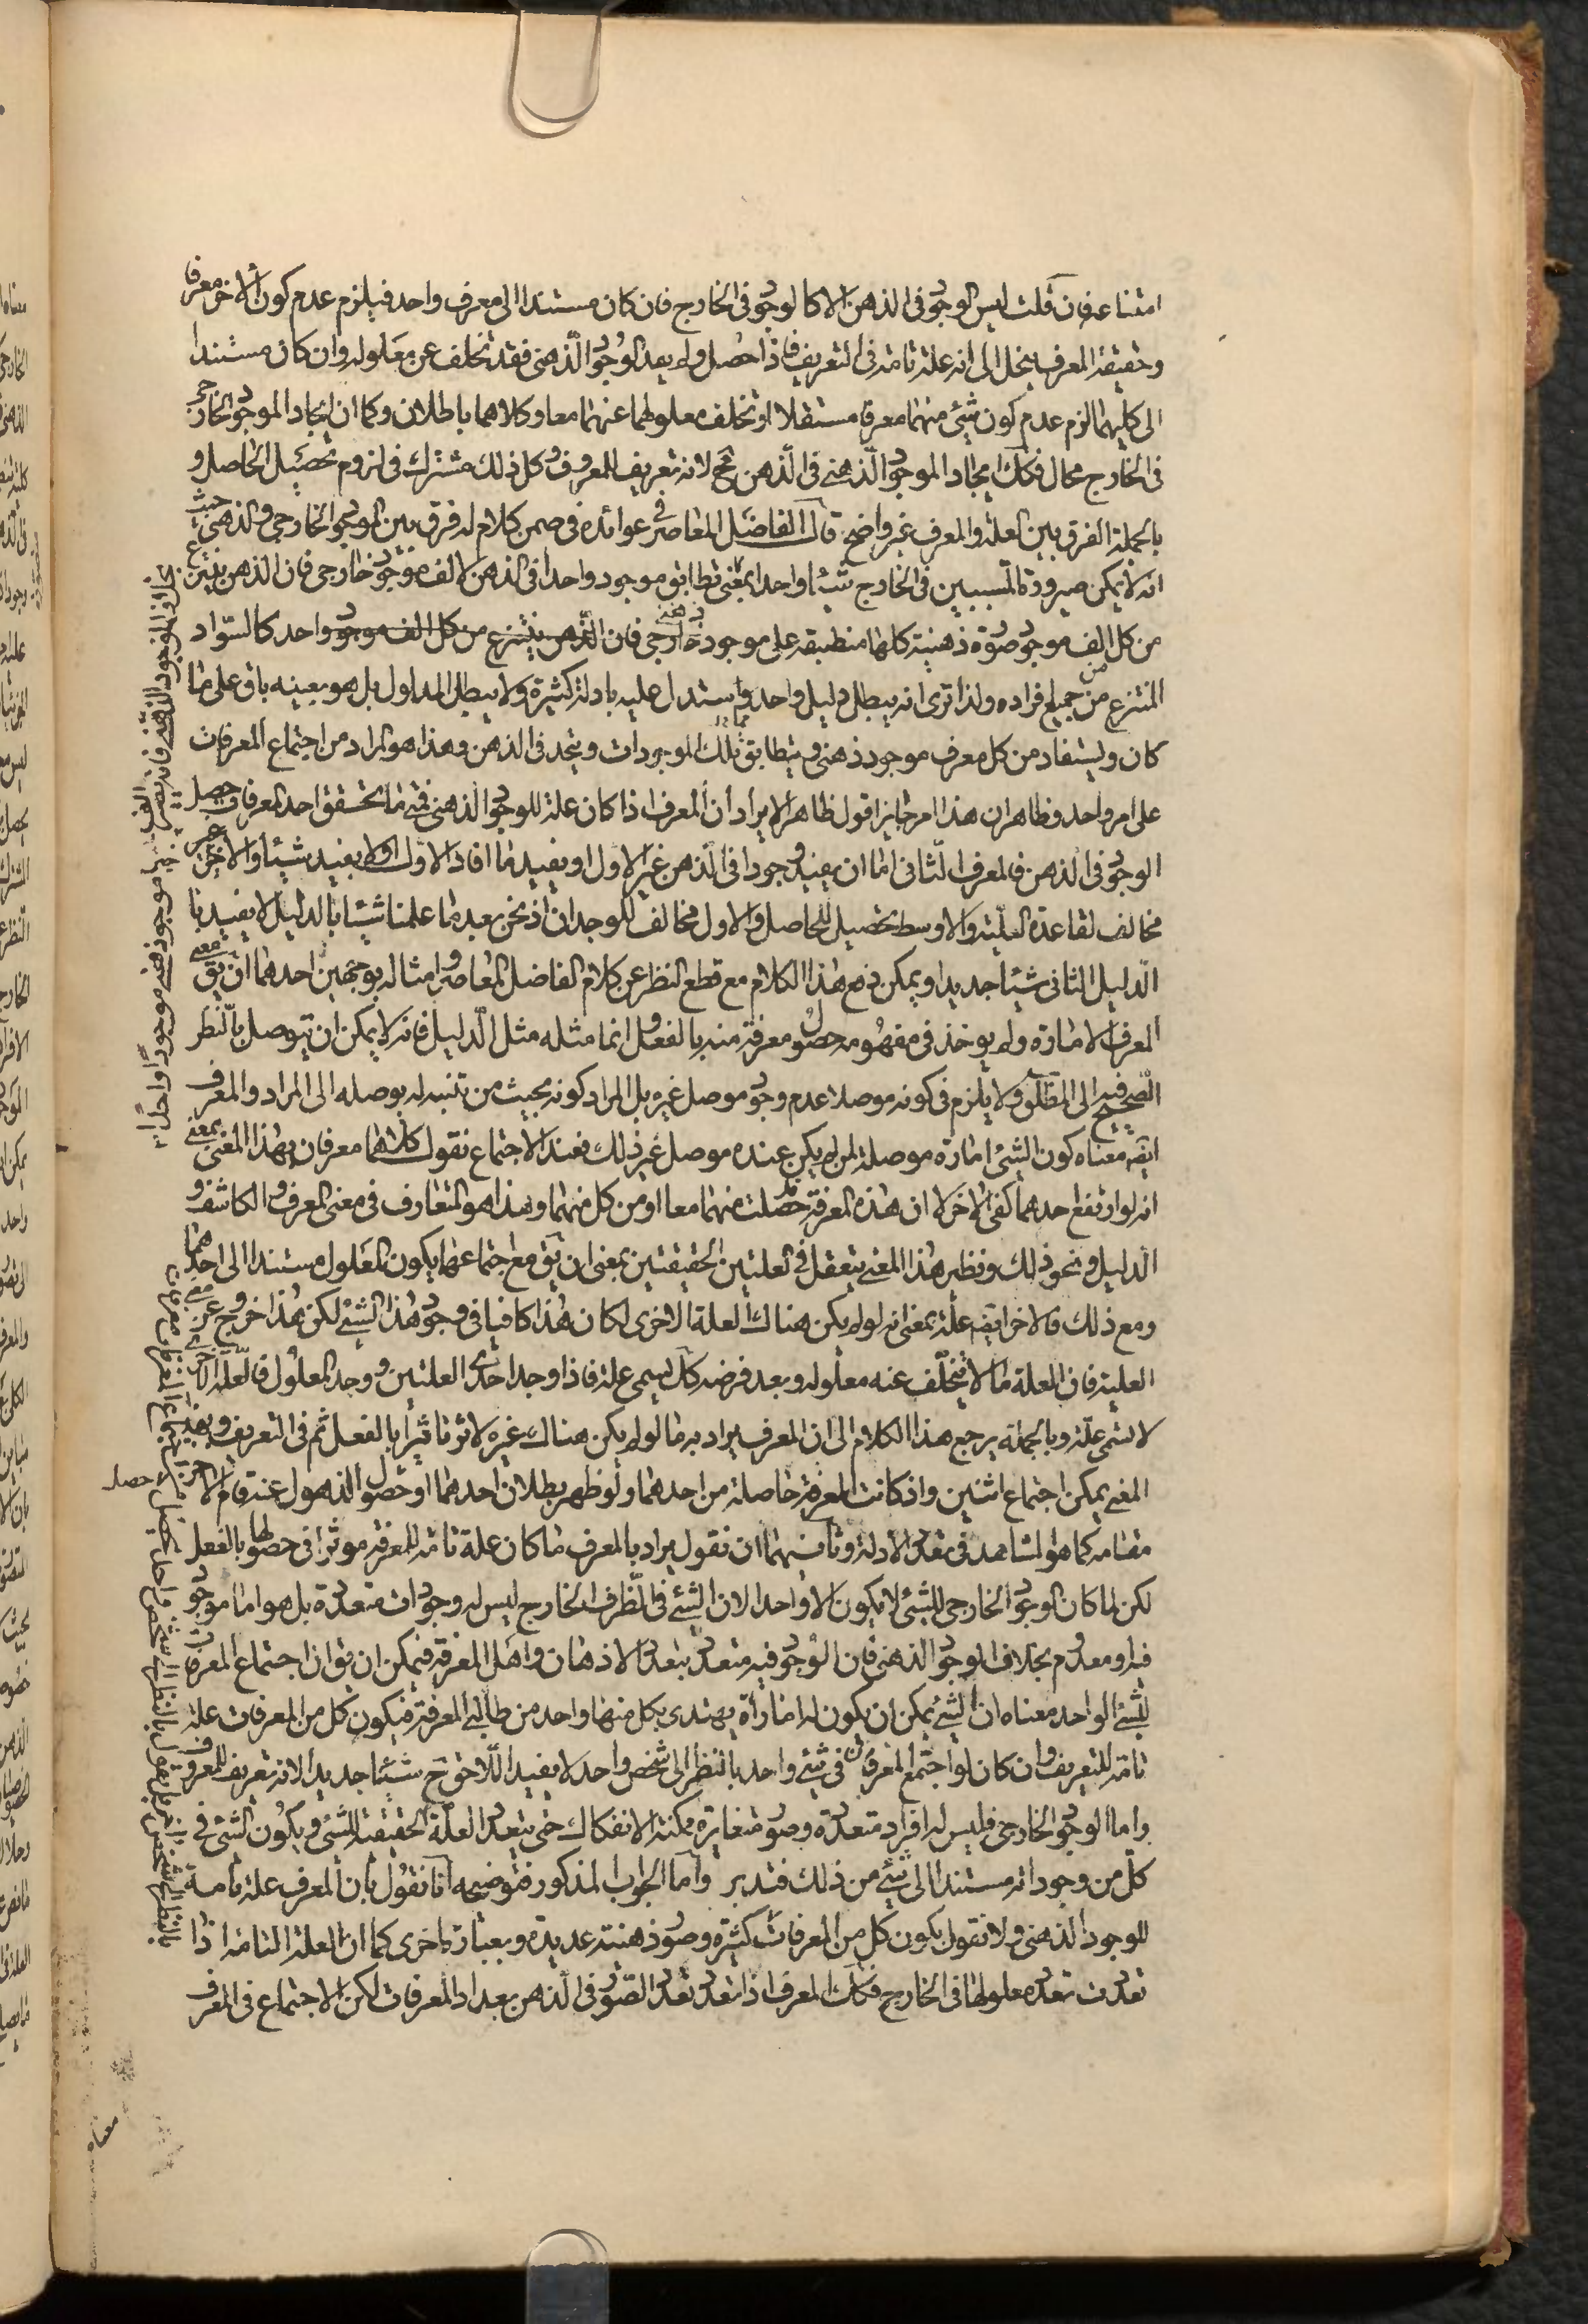 امتناعه فان قلت ليس الوجود فى الذهن الا كالوجود فى الخارج فان كان مستندا الى معرف واحد فيلزم عدم كون الاخر معرفا
وحقيقة المعرف ينحل الى انه علة تامة فى التعريف فاذا حصل ولم يعد الوجود الذهنى فقد تخلف عن معلوله وان كان مستندا
الى كليهما لزم عدم كون شيئ منهما معرفا مستقلا او تخلف معلولهما عنهما معا وكلاهما باطلان وكما ان ايجاد الموجود الخارجى
فى الخارج محال فكك ايجاد الموجود الذهنى فى الذهن مح لانه تعريف للمعروف وكل ذلك مشترك فى لزوم تحصيل الحاصل و
بالجملة الفرق بين العلة والمعرف غير واضح قال الفاضل المعاصر فى عوائده فى ضمن كلام له فرق بين الموجود الخارجى والذهنى حيث
انه لا يمكن صيرورة المسببين فى الخارج شيئا واحدا بمعنى تطابق موجود واحدا فى الذهن لالف موجود خارجى فان الذهن ينتزع
من كل الف موجود صورة ذهنية كلها منطبقه على موجود ذهنى خارجى فان الذهن ينتزع من كل الف موجود واحد كالسواد
المنتزع من جميع افراده ولذا ترى انه يبطل دليل واحد واستدل عليه بادلة كثيرة ولا يبطل المدلول بل هو بعينه باق على ما
كان ويستفاد من كل معرف موجود ذهنى ويتطابق تلك الموجودات ويتحد فى الذهن وهذا هو المراد من اجتماع المعرفات
على امر واحد وظاهر ان هذا امر جايز اقول ظاهر الايراد ان المعرف اذا كان علة للوجود الذهنى فمتى ما تحقق احد المعرفات حصل
الوجود فى الذهن فالمعرف الثانى اما ان يفيد وجودا فى الذهن غير الاول او يفيد ما افاد الاول او لا يفيد شيئا والاخير
مخالف لقاعدة العلية والاوسط تحصيل للحاصل والاول مخالف للوجدان اذ نحن بعد ما علمنا شيئا بالدليل لا يفيدنا
الدليل الثانى شيئا جديدا ويمكن دفع هذا الكلام مع قطع النظر عن كلام الفاضل المعاصر وامثاله بوجهين احدهما ان يق معنى
المعرف الامارة ولم يوخذ فى مفهومه حصول معرفة منه بالفعل وانما مثله مثل الدليل فانه لا يمكن ان يتوصل بالنظر
الصحيح فيه الى المطلوب ولا يلزم فى كونه موصلا عدم وجود موصل غيره بل المراد كونه بحيث من تنبه له يوصله الى المراد والمعرف
ايضه معناه كون الشئ امارة موصلة لمن لم يكن عنده موصل غير ذلك فعند الاجتماع نقول كلاهما معرفان بهذا المعنى بمعنى
انه لو ارتفع احدهما كفى الاخر لا ان هذه المعرفة قد حصلت منهما معا او من كل منهما وهذا هو المتعارف فى معنى المعرف والكاشف و
الدليل ونحو ذلك ونظير هذا المعنى يتعقل فى العلتين الحقيقتين بمعنى ان يق مع اجتماعهما يكون المعلول مستندا الى احدهما
ومع ذلك فالاخر ايضه علة بمعنى انه لو لم يكن هناك العلة الاخرى لكان هذا كافيا فى وجود هذا الشئ لكن هذا خروج عن معنى
العلية فان العلة ما لا يتخلف عنه معلوله وبعد فرضه كك يسمى علة فاذا وجد احدى العلتين ووجد المعلول فالعلة الاخرى
لا تسمى علة وبالجملة يرجع هذا الكلام الى ان المعرف يراد به ما لو لم يكن هناك غيره لاثر تاثيرا بالفعل ثم فى التعريف وبهذا
المعنى يمكن اجتماع اثنين واذ كانت المعرفة حاصلة من احدهما ولو ظهر بطلان احدهما او حصول الذهول عنه قام الاخر
مقامه كما هو المشاهد فى تعدد الادلة وثانيهما ان نقول يراد بالمعرف ما كان علة تامة للمعرفة موثرا فى حصولها بالفعل
لكن لما كان الوجود الخارجى للشئ لا يكون الا واحدا لان الشئ فى ظرف الخارج ليس له وجودات متعددة بل هو اما موجود
فيه او معدوم بخلاف الوجود الذهنى فان الوجود فيه متعدد بتعدد الاذهان واهل المعرفة فيمكن ان يق ان اجتماع المعرفات
للشئ الواحد معناه ان الشئ يمكن ان يكون له امارات يهتدى بكل منها واحد من طالبى المعرفة فيكون كل من المعرفات علة
تامة للتعريف وان كان لو اجتمع المعرفان فى شئ واحد بالنظر الى شخص واحد لا يفيد اللاحق ح شيئا جديدا لانه تعريف للمعروف
واما الوجود الخارجى فليس له افراد متعددة وصور متغايرة ممكنة الانفكاك حتى يتعدد العلة الحقيقية للشئ ويكون الشئ فى
كل من وجوداته مستندا الى شئ من ذلك فتدبر واما الجواب المذكور فتوضيحه انا نقول بان المعرف علة تامة
للوجود الذهنى ولا نقول يكون كل من المعرفات كثيرة وصور ذهنية عديدة وبعبارة اخرى كما ان العلة التامة اذا
تعددت تعدد معلولها فى الخارج فكك المعرف اذا تعدد تعدد الصور فى الذهن بعداد المعرفات لكن الاجتماع فى المعرف